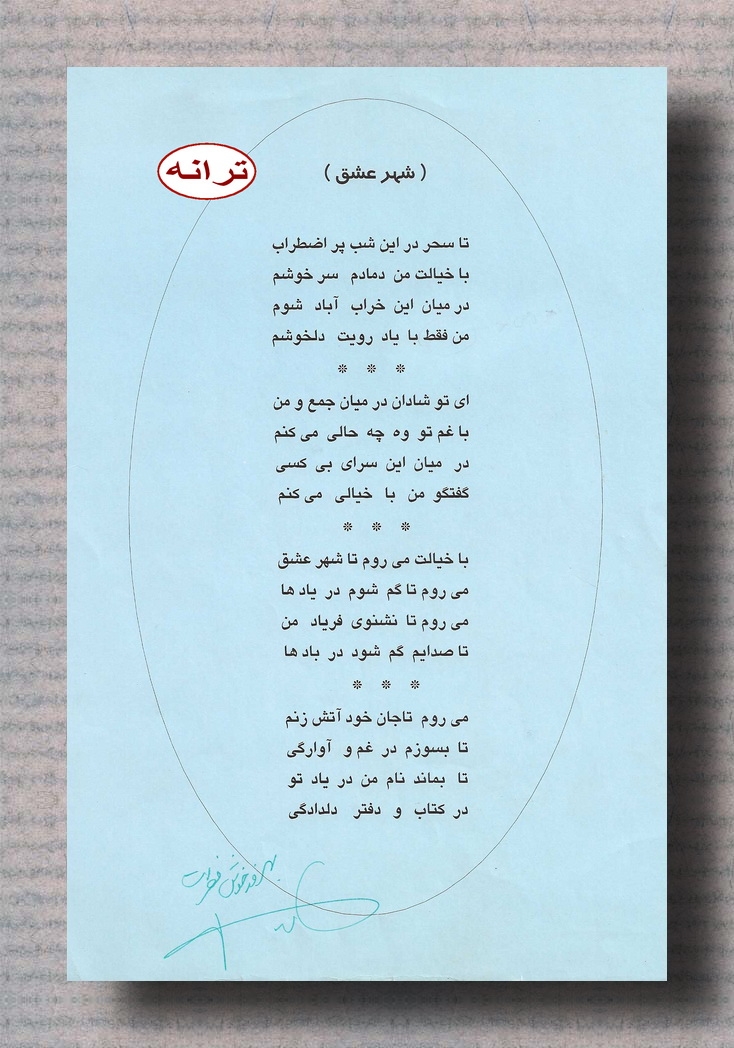 ترانه
( شهر عشق )
تا سحر در این شب پر اضطراب
با خیالت من دمادم سر خوشم
در میان این خراب آباد شوم
من فقط با یاد رویت دلخوشم
❊ ❊ ❊
ای تو شادان در میان جمع و من
با غم تو وه چه حالی می کنم
در میان این سرای بی کسی
گفتگو من با خیالی می کنم
❊ ❊ ❊
با خیالت می روم تا شهر عشق
می روم تا گم شوم در یاد ها
می روم تا نشنوی فریاد من
تا صدایم گم شود در باد ها
❊ ❊ ❊
می روم تاجان خود آتش زنم
تا بسوزم در غم و آوارگی
تا بماند نام من در یاد تو
در کتاب و دفتر دلدادگی
بهروز خوش فطرت